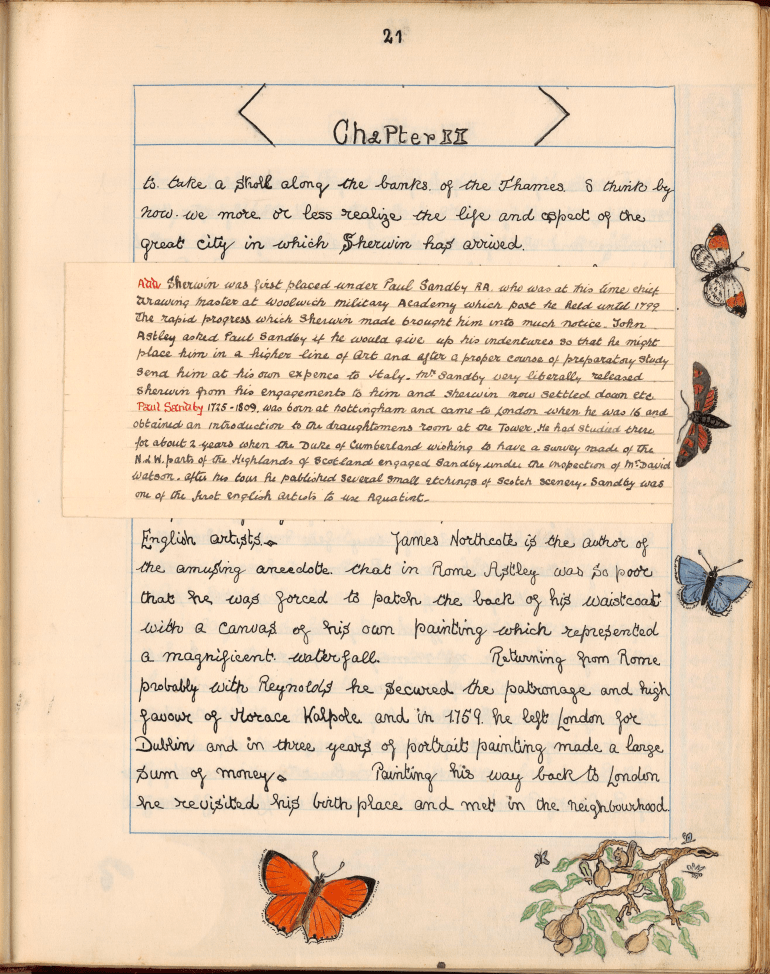 21
Chapter II
to take a stroll along the banks of the Thames. I think by
now we more or less realize the life and aspect of the
great city in which Sherwin has arrived.
Add. Sherwin was first placed under Paul Sandby RA. who was at this time chief
drawing master at Woolwich military Academy which post he held until 1799
The rapid progress which Sherwin made brought him into much notice. John
Astley asked Paul Sandby if he would give up his indentures so that he might
place him in a higher line of Art and after a proper course of preparatory study
send him at his own expence to Italy. Mr Sandby very liberally released
Sherwin from his engagements to him and Sherwin now settled down etc
Paul Sandby 1725-1809. was born at Nottingham and came to London when he was 16 and
obtained an introduction to the draughtsmens room at the Tower. He had studied there
for about 2 years when the Duke of Cumberland wishing to have a survey made of the
N & W. parts of the Highlands of Scotland engaged Sandby under the inspection of Mr David
Watson. After his tour he published several small etchings of Scotch scenery. Sandby was
one of the first English Artists to use Aquatint.
English artists. James Northcote is the author of
the amusing anecdote. that in Rome Astley was so poor
that he was forced to patch the back of his waistcoat
with a canvas of his own painting which represented
a magnificent waterfall. Returning from Rome
probably with Reynolds he secured the patronage and high
favour of Horace Walpole and in 1759. he left London for
Dublin and in three years of portrait painting made a large
sum of money. Painting his way back to London
he revisited his birth place and met in the neighbourhood.